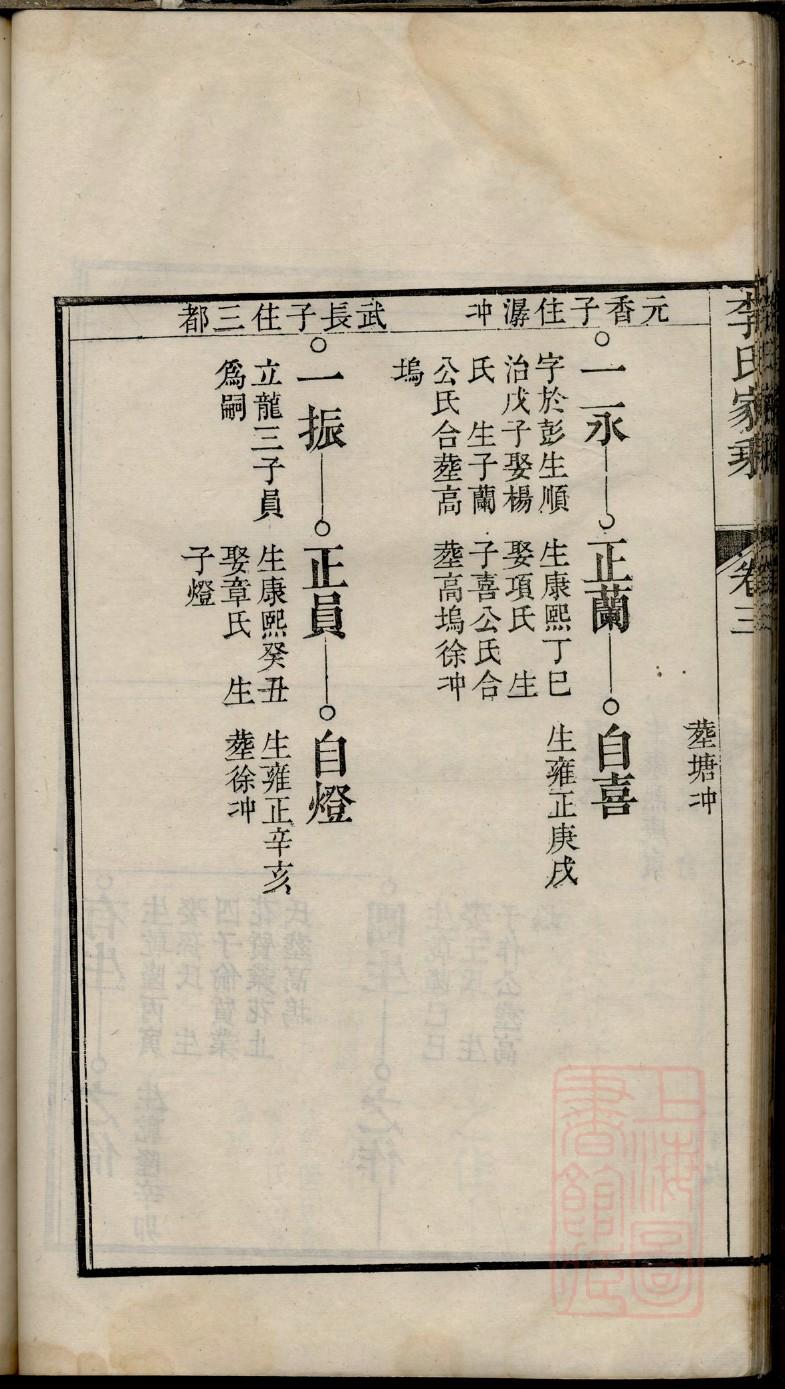 李氏家乘
卷三
葬塘冲
元香子住潺冲
一永
字於彭生順
治戊子娶楊
氏　生子蘭
公氏合葬高
塢
正蘭
生康熙丁巳
娶項氏　生
子喜公氏合
葬高塢徐冲
自喜
生雍正庚戌
武長子住三都
一振
立龍三子員
爲嗣
正員
生康熙癸丑
娶章氏　生
子燈
自燈
生雍正辛亥
葬徐冲
上海圖
書館藏